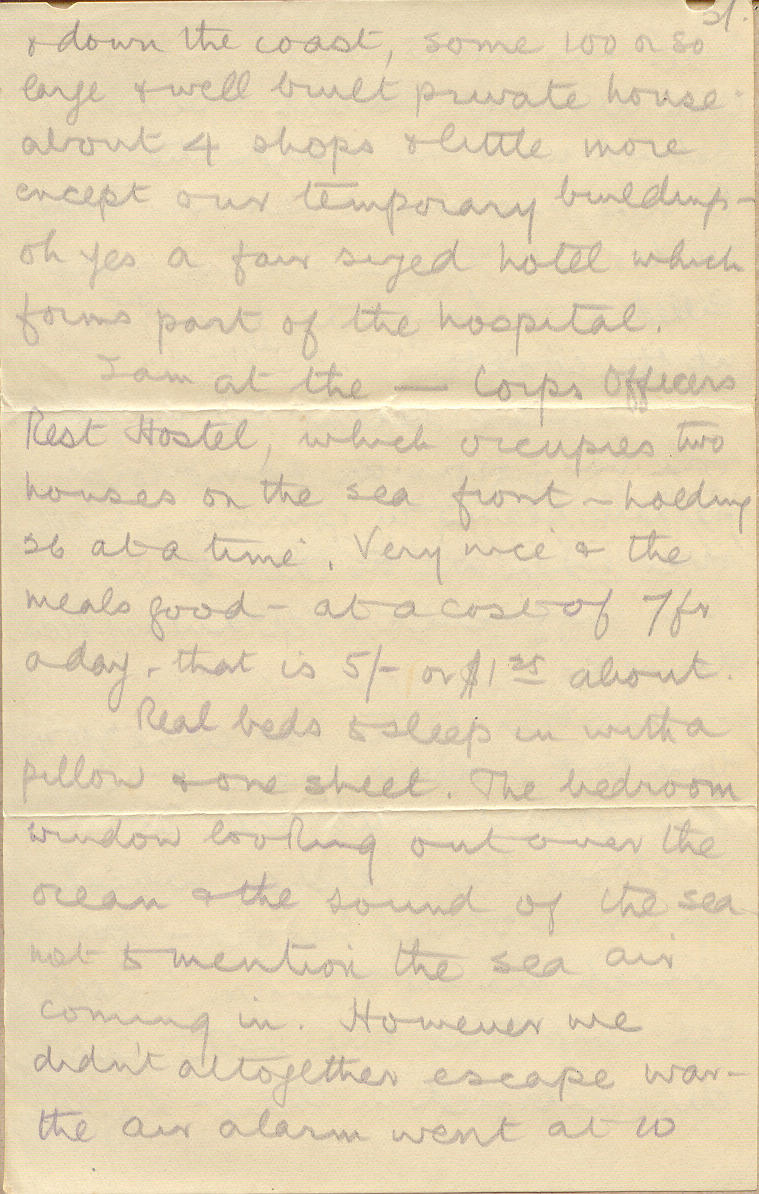 & down the coast, some 100 or so
large & well built private house
about 4 shops & little more
except our temporary buildings -
oh yes a fair sized hotel which
forms part of the hospital.
I am at the — Corps Officers
Rest Hostel, which occupies two
houses on the sea front - holding
26 at a time. Very nice & the
meals good - at a cost of 7fr
a day, that is 5/- or $1 25 about.
Real beds to sleep in with a
pillow & one sheet. The bedroom
window looking out over the
ocean & the sound of the sea
not to mention the sea air
coming in. However we
didn't altogether escape war -
the air alarm went at 10